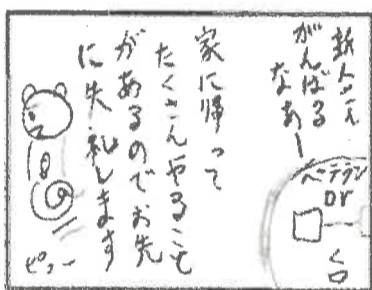 新人さん
がんばる
なあー
ベテラン
or
家に帰って
たくさんやること
があるのでお先
に失礼します
ピュー